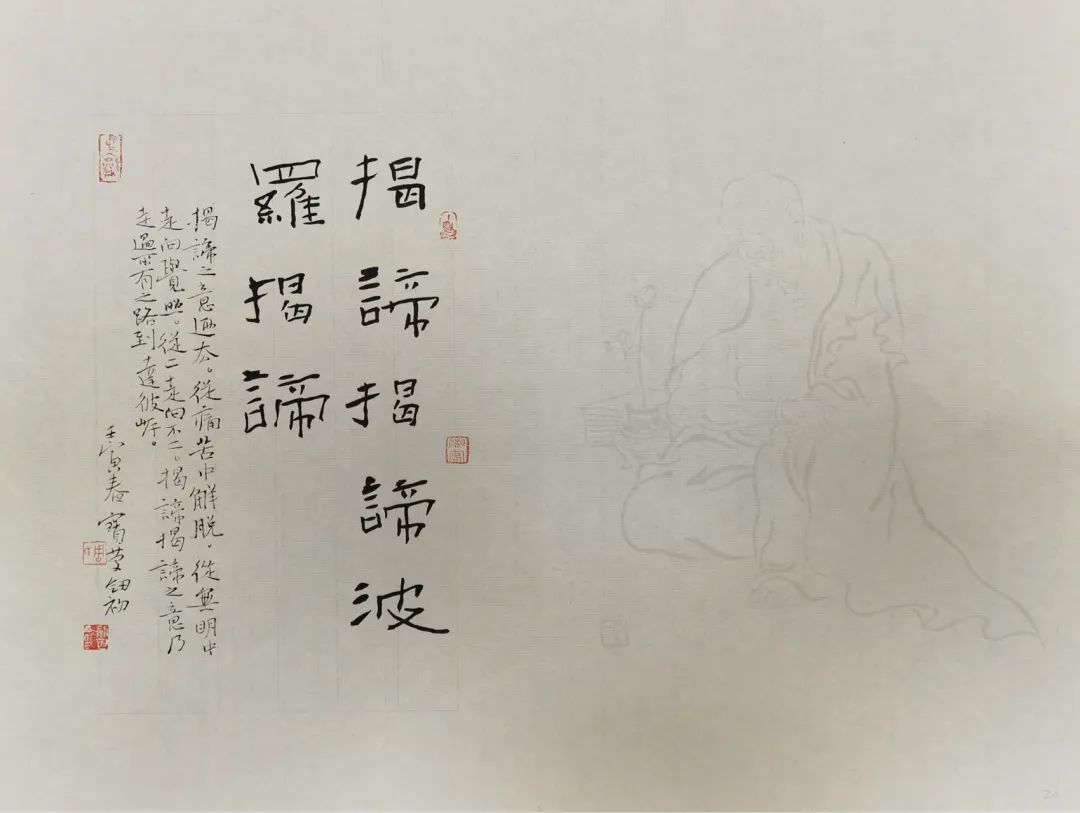 揭諦揭諦波
羅揭諦
揭諦之意迺去。從痛苦中解脫，從無明中
走向覺照。從二走向不二。揭諦揭諦之意乃
走過所有之路到達彼岸。
壬寅春寶莹釰初